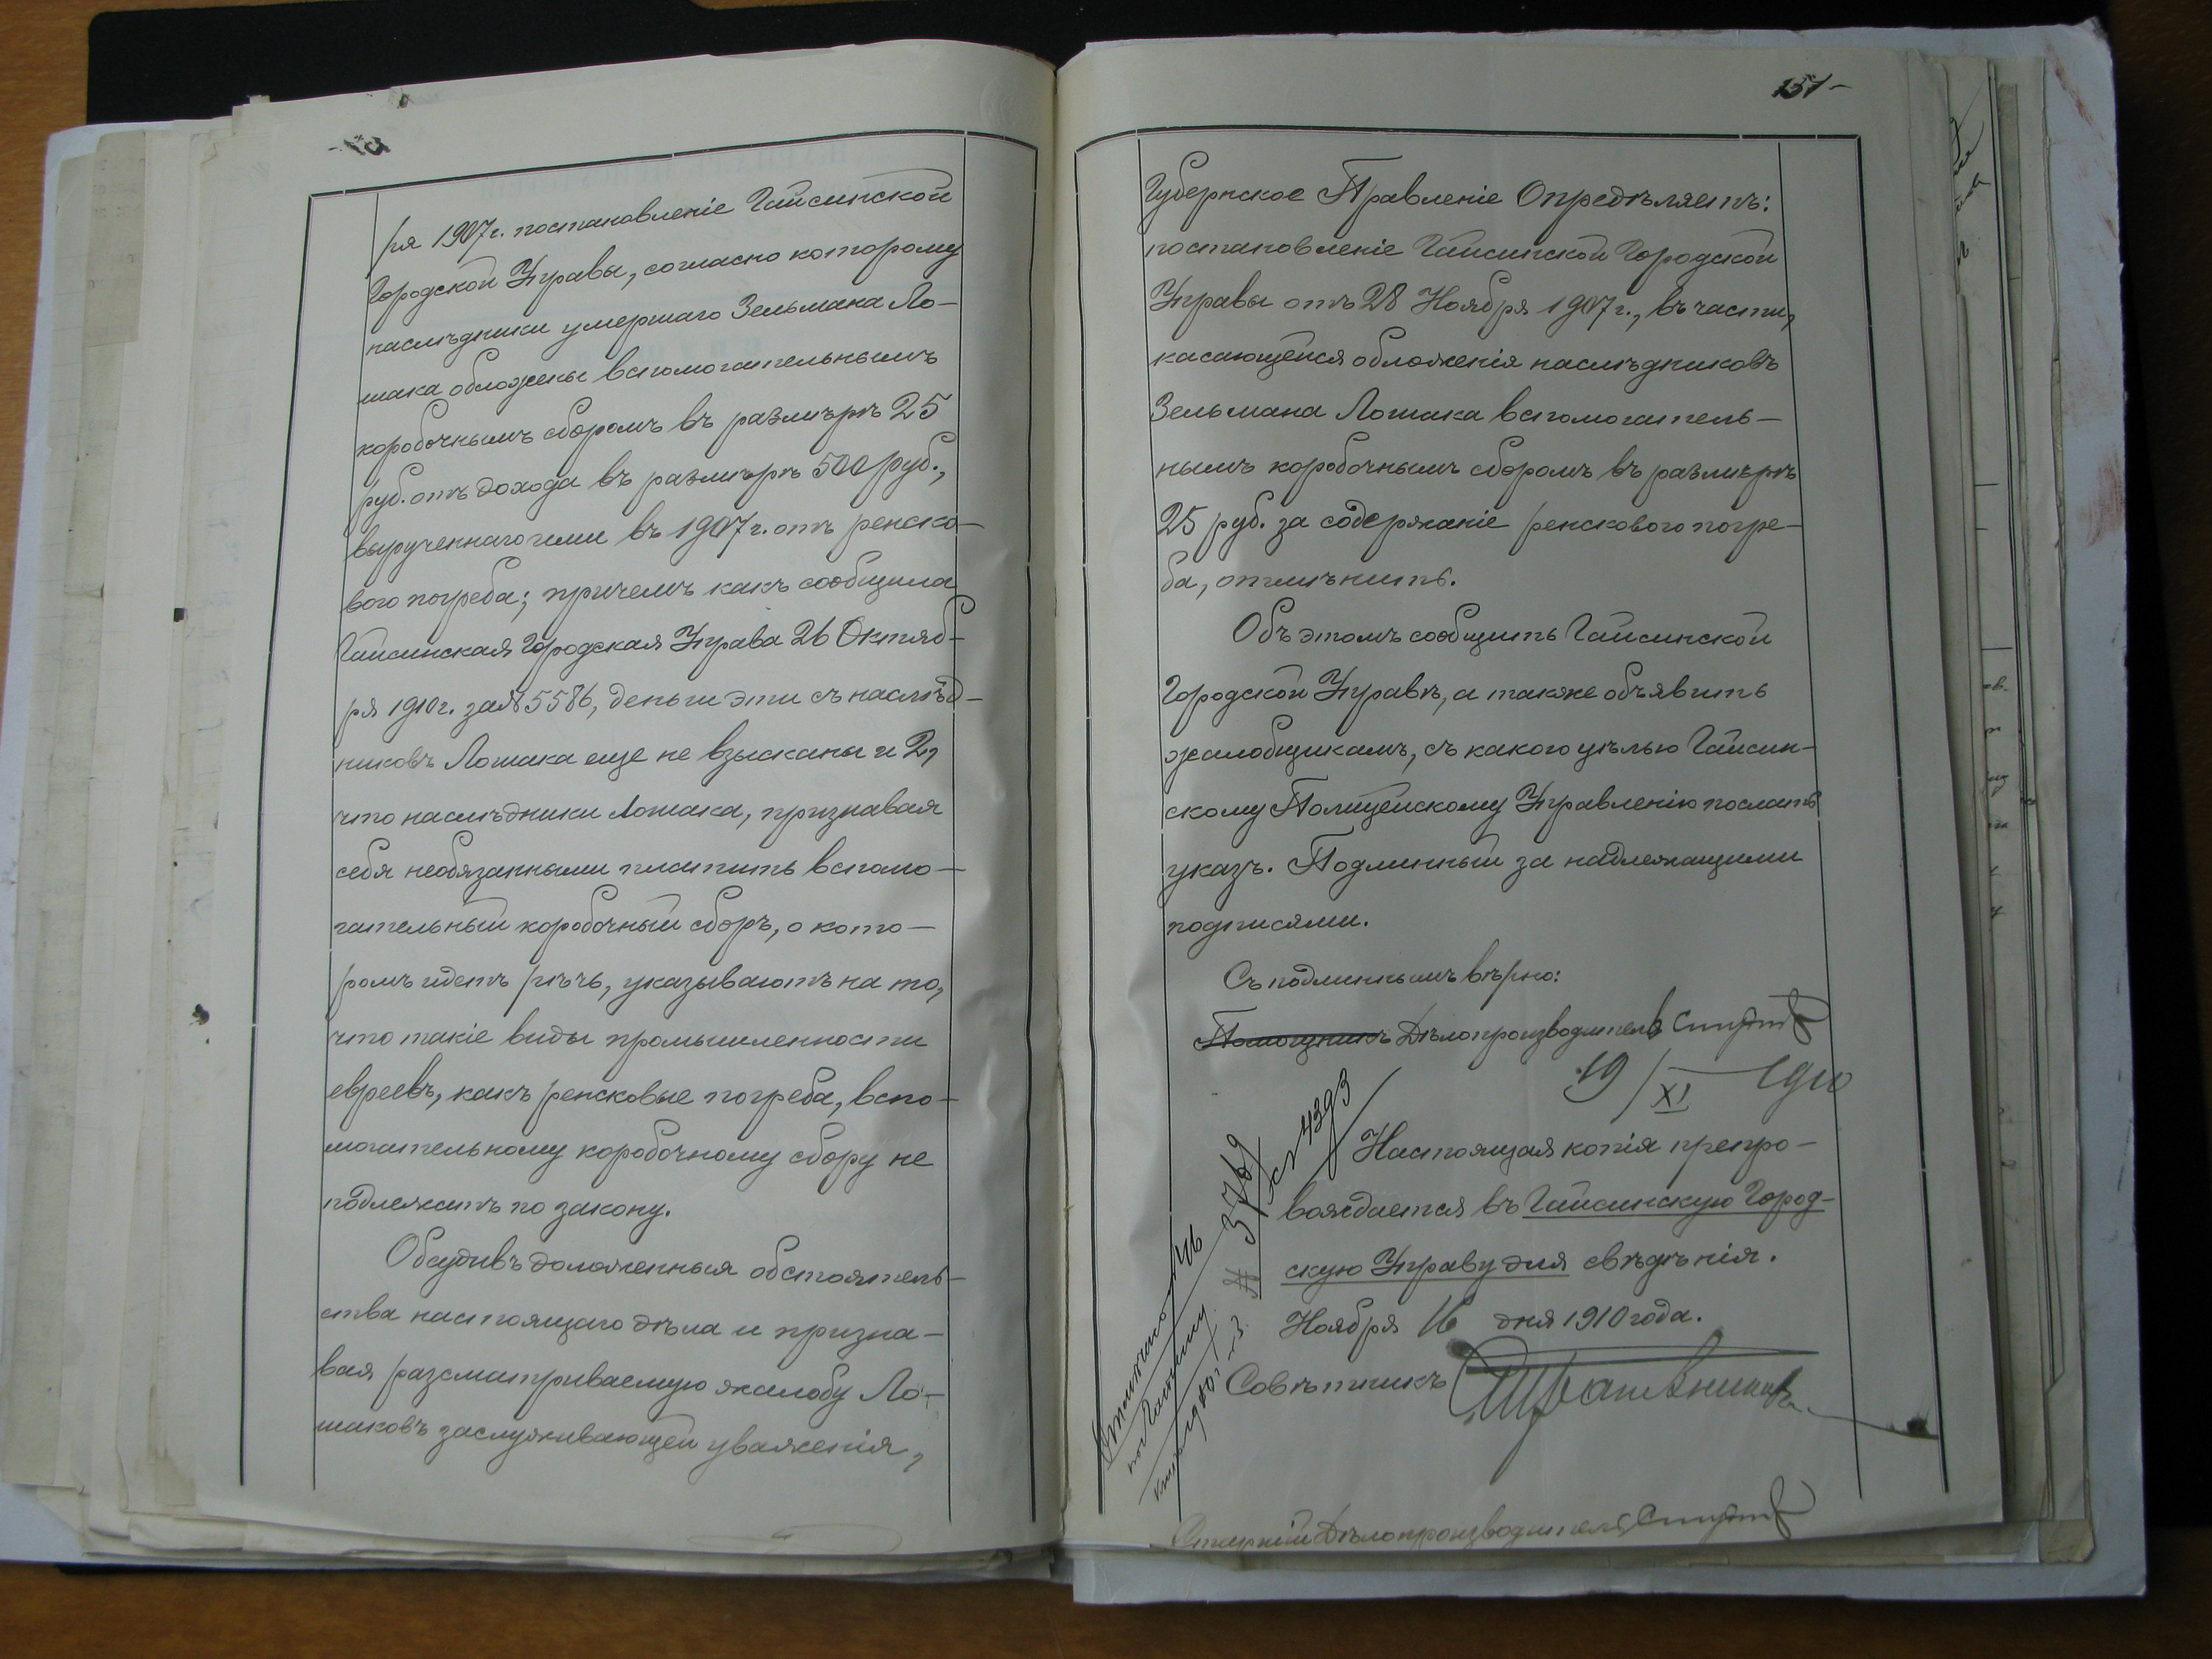 ря 1907 г. постановленіе Гайсинской
Городской Управы, согласно которому
наслѣдники умершаго Зельмана Ло-
шака обложены вспомогательнымъ
коробочнымъ сборомъ въ размѣрѣ 25
руб. отъ дохода въ размѣрѣ 500 руб.,
вырученнаго ими въ 1907 г. отъ ренско-
вого погреба; причемъ какъ сообщила
Гайсинская Городская Управа 26 Октяб-
ря 1910 г. за № 5586, деньги эти съ наслѣд-
никовъ Лошака еще не взысканы и 2,
что наслѣдники Лошака, признавая
себя необязанными платить вспомо-
гательный коробочный сборъ, о кото-
ромъ идетъ рѣчь, указываютъ на то,
что такіе виды промышленности
евреевъ, какъ ренсковые погреба, вспо-
могательному коробочному сбору не
подлежатъ по закону.
Обсудивъ доложенныя обстоятель-
ства настоящаго дѣла и призна-
вая разсматриваемую жалобу Ло-
шаковъ заслуживающей уваженія,
151-
Губернское Правленіе Опредѣляетъ:
постановленіе Гайсинской Городской
Управы отъ 28 Ноября 1907 г., въ части,
касающейся обложенія наслѣдниковъ
Зельмана Лошака вспомогатель-
нымъ коробочнымъ сборомъ въ размѣрѣ
25 руб. за содержаніе ренскового погре-
ба, отмѣнить.
Объ этомъ сообщить Гайсинской
Городской Управѣ, а также объявить
жалобщикамъ, съ какого цѣлью Гайсин-
скому Полицейскому Управленію послать
указъ. Подлинный за надлежащими
подписями.
Съ подлиннымъ вѣрно:
Помощникъ Дѣлопроизводитель
19/XI 1910
№ 3769
4393
Настоящая копія препро-
вождается въ Гайсинскую Город-
скую Управу для свѣдѣнія.
Ноября 16 дня 1910 года.
Совѣтникъ
Старшій Дѣлопроизводитель